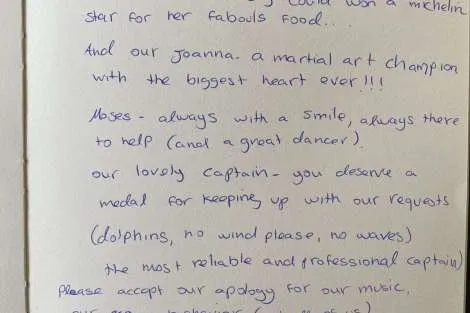 could won a michelin
star for her fabouls food...
And our Joanna. a martial art champion
with the biggest heart ever!!!
Moses - always with a smile, always there
to help (and a great dancer).
our lovely captain - you deserve a
medal for keeping up with our requests
(dolphins, no wind please, no waves)
the most reliable and professional captain)
Please accept our apology for our music,
our